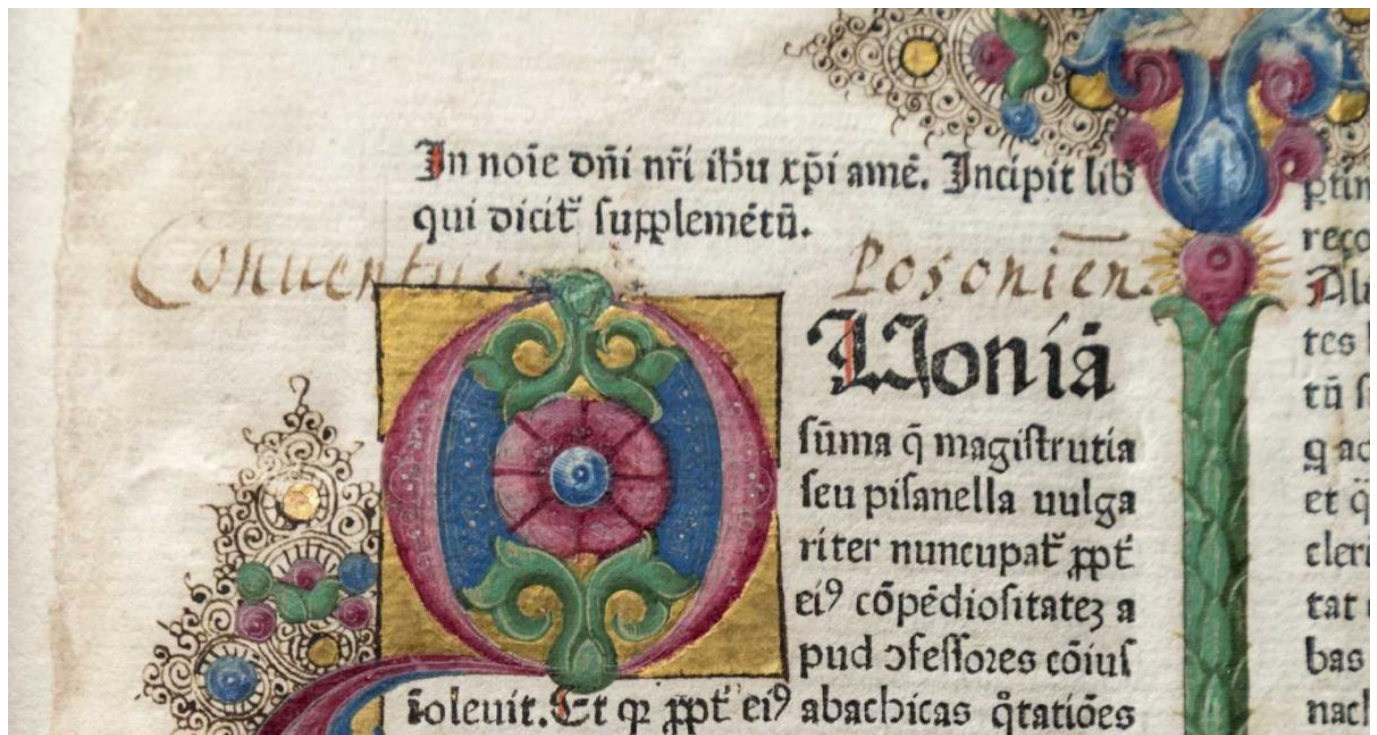 In noīe dñi nr̄i ih̄u xp̄i amē. Incipit lib̄
qui dicit᷑ ſupplemētū.
Conuentus Posonien̄.
QUoniā
ſūma q̄ magiſtrutia
ſeu piſanella uulga
riter nuncupat᷑ ꝓpt᷑
eiꝰ cōpēdioſitatez a
pud ↄfeſſoꝛes cōiuſ
īoleuit. Et qꝛ ꝓpt᷑ eiꝰ abachicas q̊tatiōes
ꝑtin
reço
Alu
tes
tū ſ
q ac
et q̄
cleri
tat
bas
nach